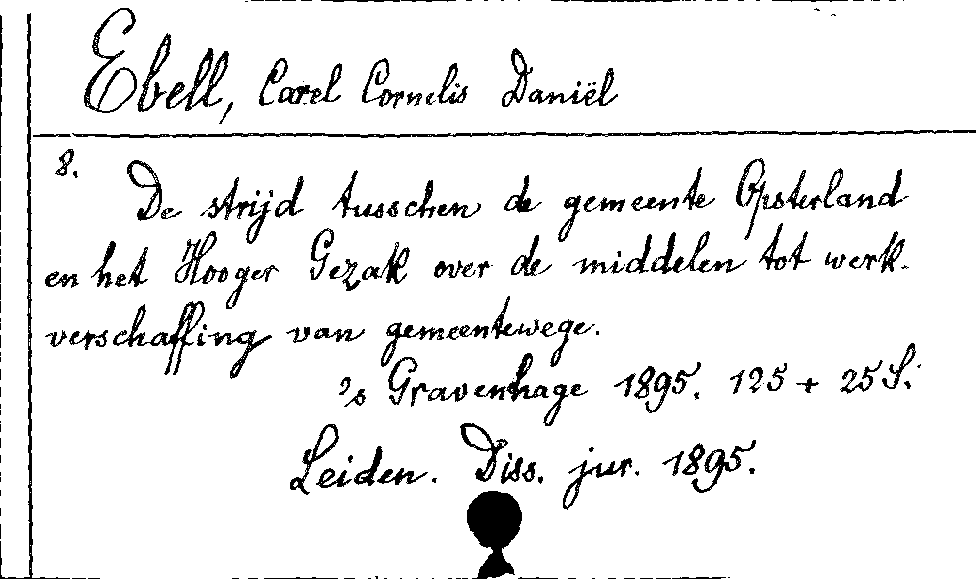 Ebell, Carel Cornelis Daniël
8.
De strijd tusschen de gemeente Opsterland
en het Hooger Gezak over de middelen tot werk-
verschaffing van gemeentewege.
's Gravenhage 1895. 125 + 25 S.
Leiden. Diss. jur. 1895.